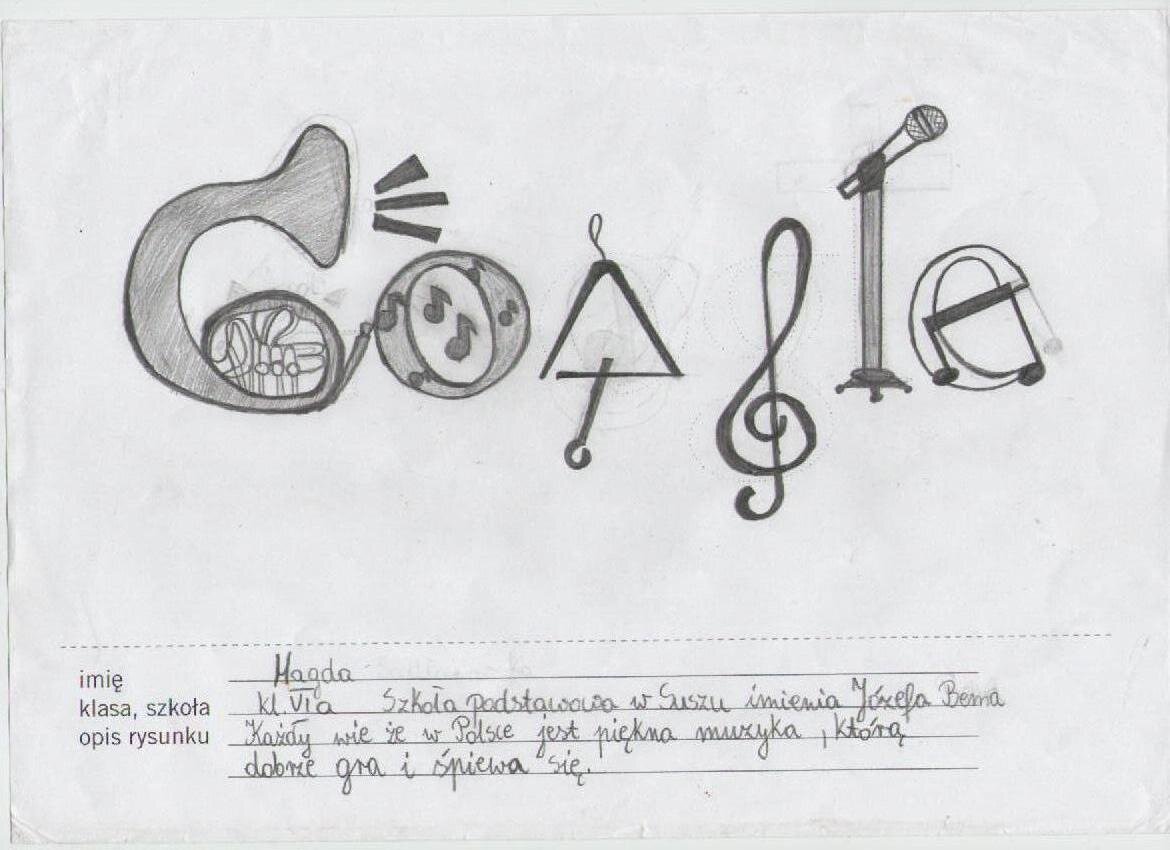 Google
imię Magda
klasa, szkoła kl. VI a Szkoła podstawowa w Suszu imienia Józefa Bema
opis rysunku Każdy wie że w Polsce jest piękna muzyka, którą
dobrze gra i śpiewa się.